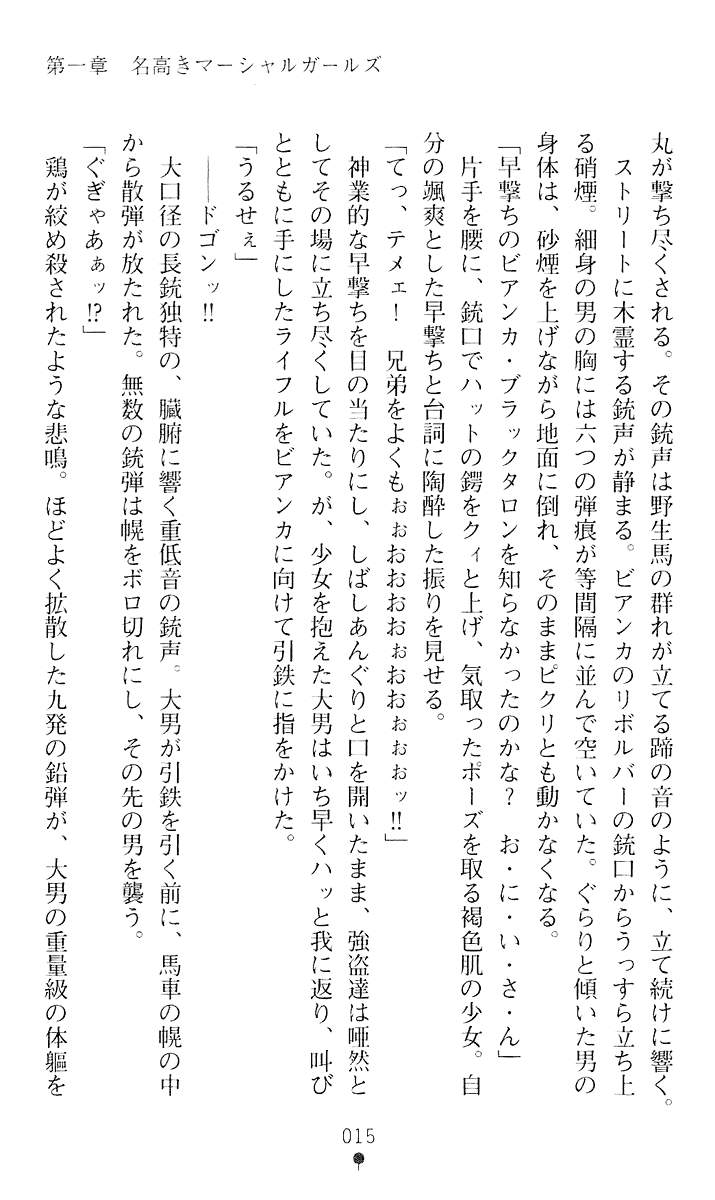 第一章　名高きマーシャルガールズ
丸が撃ち尽くされる。その銃声は野生馬の群れが立てる蹄の音のように、立て続けに響く。
　ストリートに木霊する銃声が静まる。ビアンカのリボルバーの銃口からうっすら立ち上
る硝煙。細身の男の胸には六つの弾痕が等間隔に並んで空いていた。ぐらりと傾いた男の
身体は、砂煙を上げながら地面に倒れ、そのままピクリとも動かなくなる。
「早撃ちのビアンカ・ブラックタロンを知らなかったのかな？　お・に・い・さ・ん」
　片手を腰に、銃口でハットの鍔をクィと上げ、気取ったポーズを取る褐色肌の少女。自
分の颯爽とした早撃ちと台詞に陶酔した振りを見せる。
「てっ、テメェ！　兄弟をよくもぉぉおおおおぉおおぉぉぉッ!!」
　神業的な早撃ちを目の当たりにし、しばしあんぐりと口を開いたまま、強盗達は唖然と
してその場に立ち尽くしていた。が、少女を抱えた大男はいち早くハッと我に返り、叫び
とともに手にしたライフルをビアンカに向けて引鉄に指をかけた。
「うるせぇ」
　――ドゴンッ!!
　大口径の長銃独特の、臓腑に響く重低音の銃声。大男が引鉄を引く前に、馬車の幌の中
から散弾が放たれた。無数の銃弾は幌をボロ切れにし、その先の男を襲う。
「ぐぎゃあぁッ!?」
　鶏が絞め殺されたような悲鳴。ほどよく拡散した九発の鉛弾が、大男の重量級の体躯を
015